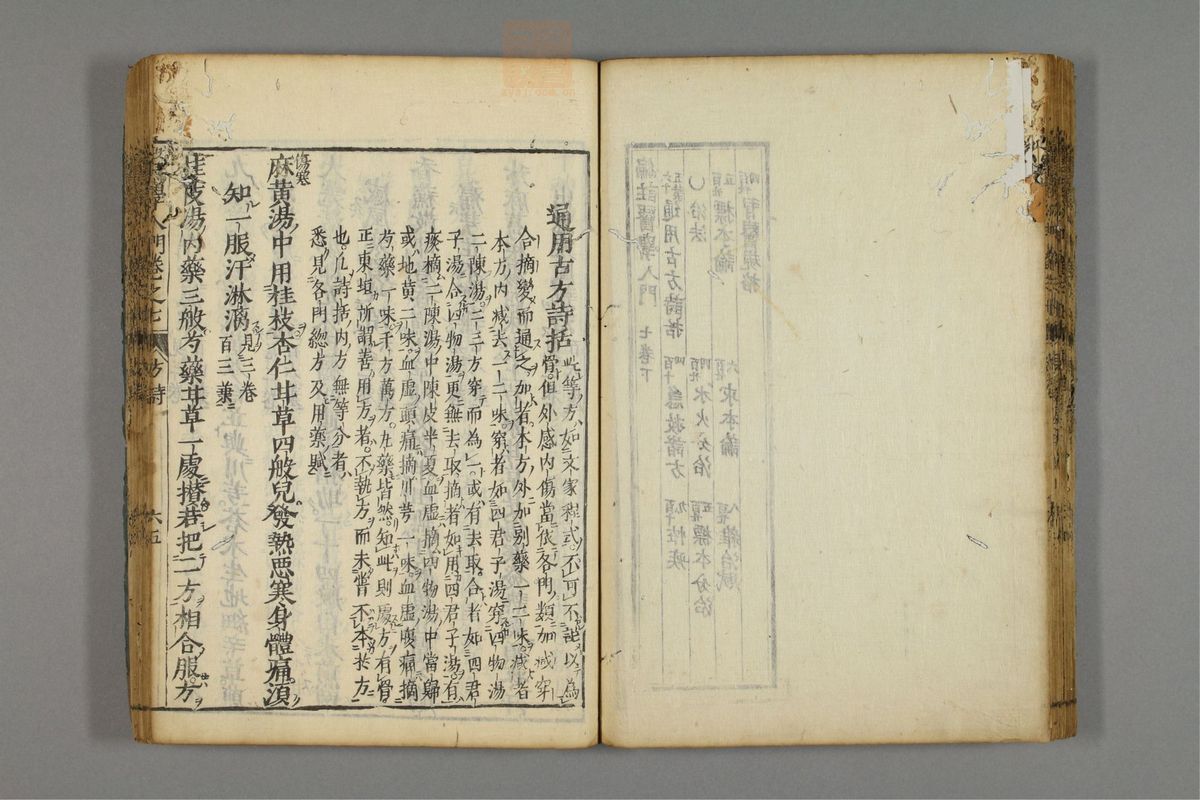 通用古方詩括
此等方如文家程式不可不記以為
骨但外感內傷當依各門類加減穿
合摘變而通之加者本方外加別藥一二味減者
本方內減去一二味穿者如四君子湯穿四物湯
二陳湯三三方穿而為一或有去取合者如四君
子湯合四物湯更無去取摘者如用四君子湯有
痰摘二陳湯中陳皮半夏血虛摘四物湯中當歸
或地黃二味血虛頭痛摘川芎一味血虛腹痛摘
芍藥一味千方萬方凡藥皆然知此則處方有骨
正東垣所謂善用方者不執方而未嘗不本於方
也凡詩括內方無等分者
悉見各門總方及用藥賦
傷寒
麻黄湯中用桂枝杏仁甘草四般兒發熱惡寒身體痛須
知一服汗淋漓見三卷
百三葉
桂枝湯內藥三般芍藥甘草一處攅若把二方相合服方
醫學入門卷之七 方詩 六五